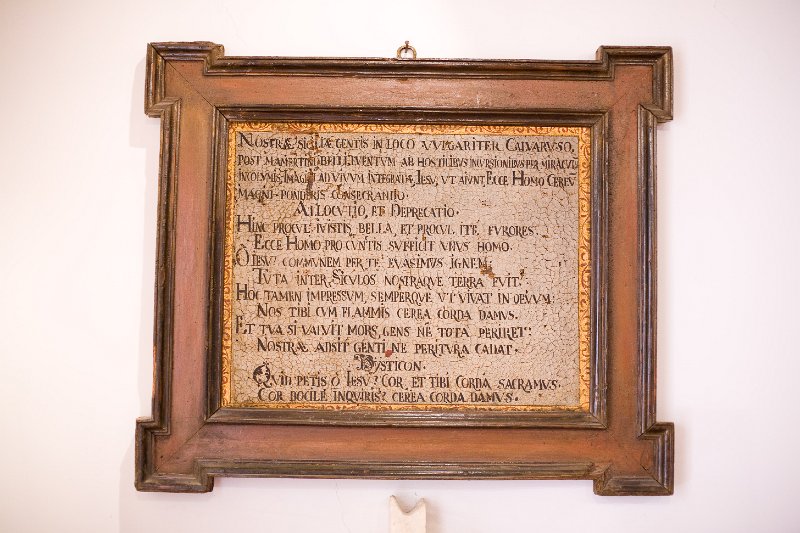 NOSTRÆ SICILIÆ GENTIS IN LOCO VVLGARITER CALVARUSO,
POST MAMERTINO BELLI EVENTUM AB HOSTILIBUS INVRSIONIBUS PER MIRACUL
INCOLUMIS IMAGINI AD VIVUM INTEGRATÆ, IESU, UT AIUNT ECCE HOMO CEREU
MAGNI PONDERIS CONSECRANTIO.
ALLOCUTIO, ET DEPRECATIO.
HINC PROCUL IVISTIS BELLA, ET PROCUL ITE FURORES:
ECCE HOMO PRO CUNTIS SUFFICIT UNUS HOMO.
O IESU COMMUNEM PER TE EUASIMUS IGNEM
TUTA INTER SICULOS NOSTRAQUE TERRA FUIT.
HOC TAMEN IMPRESSUM, SEMPERQUE UT VIVAT IN OEVUM
NOS TIBI CUM FLAMMIS CEREA CORDA DAMUS.
ET TUA SI VALVIT MORS, GENS NE TOTA PERIRET:
NOSTRÆ ADSIT GENTI NE PERITURA CADAT.
DYSTICON.
QUID PETIS O IESU? COR, ET TIBI CORDA SACRAMUS.
COR DOCILE INQUIRIS? CEREA CORDA DAMUS.